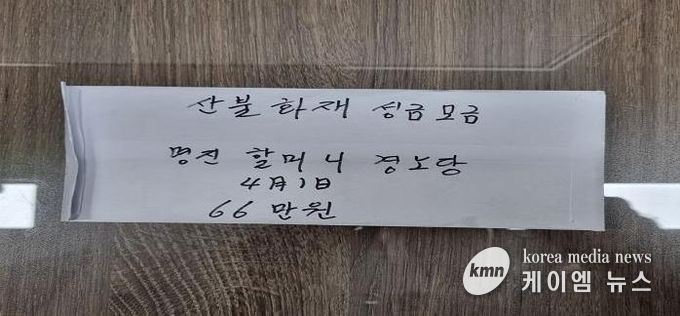 산불 화재 성금모금
명진 할머니 경노당
4月1日
66만원
kmn
korea media news
케이엠 뉴스